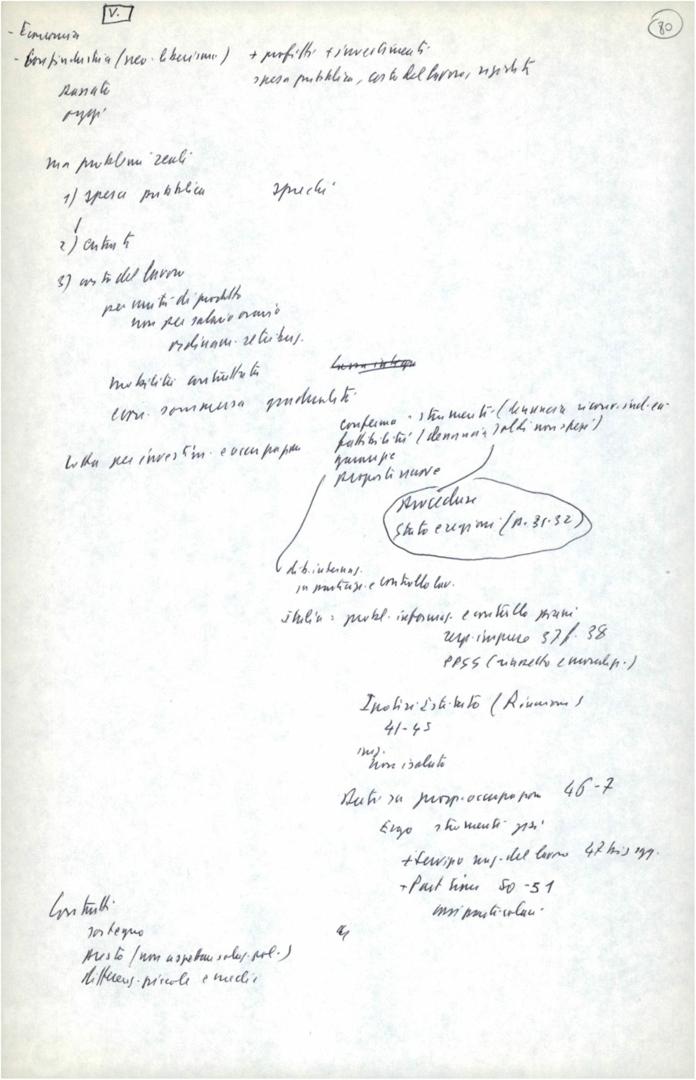 V.
80
- Economia
- Confindustria (neo-liberismo) + profitti + investimenti
spesa pubblica, costo del lavoro, rigidità
oggi
ma problemi reali
1) spesa pubblica sprechi
2)
3) costo del lavoro
per unità di prodotto
non per salario orario
ordinam. retribuz.
mobilità contrattata
econ. sommersa gradualità
Lotta per investim. e occupazione
conferma strumenti (denuncia riconv. ind. ca-
fattibilità (denuncia soldi non spesi)
garanzie
proposte nuove
Procedure
Stato e regioni (p. 31-32)
dib. internaz.
su partecip. e controllo lav.
Italia = probl. informaz. e controllo piani
resp. impresa 37 f. 38
PPSS (riassetto e moraliz.)
Ipotesi Istituto (Riunione)
41-45
non isolato
Dati su prosp. occupazione 46-7
Ergo strumenti
+ Servizio naz. del lavoro 47 bis sgg.
+ Part time 50-51
casi particolari
Contratti
sostegno
presto (non aspettare soluz. pol.)
differenz. piccole e medie